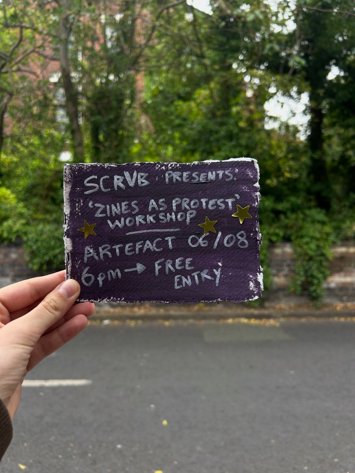 SCRVB PRESENTS:
'ZINES AS PROTEST'
WORKSHOP
ARTEFACT 06/08
6pm → FREE
ENTRY